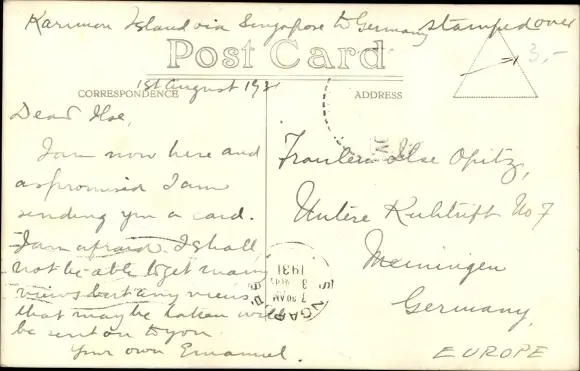 Karimon Island via Singapore to Germany stamped over
Post Card
3,-
1st August 1931
CORRESPONDENCE
ADDRESS
Dear Ilse,
I am now here and
as promised I am
sending you a card.
I am afraid I shall
not be able to get many
views but any views
that may be taken will
be sent on to you.
Your own Emanuel.
Fraulein Ilse Opitz,
Untere Kuhtrift No 7
Meiningen
Germany,
EUROPE
1931
7.30 AM